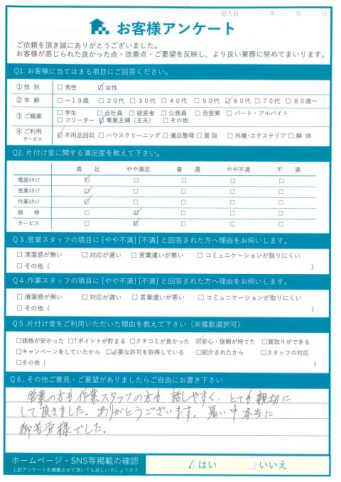 記入日 年 月 日
お客様アンケート
ご依頼を頂き誠にありがとうございました。
お客様が感じられた良かった点・改善点・ご要望を反映し、より良い業務に努めてまいります。
Q1. お客様に当てはまる項目にご回答ください。
① 性 別 □男性 ☑女性
② 年 齢 □～19歳 □20代 □30代 □40代 □50代 ☑60代 □70代 □80歳～
③ ご職業 □学生 □会社員 □経営者 □公務員 □自営業 □パート・アルバイト
□フリーター ☑専業主婦(主夫) □その他( )
④ ご利用サービス ☑不用品回収 □ハウスクリーニング □遺品整理 □買取 □外構・エクステリア □解体
Q2. 片付け堂に関する満足度を教えて下さい。
満 足 やや満足 普 通 やや不満 不 満
電話スタッフ ☑ □ □ □ □
営業スタッフ ☑ □ □ □ □
作業スタッフ ☑ □ □ □ □
価 格 □ ☑ □ □ □
サービス □ ☑ □ □ □
Q3.営業スタッフの項目に[やや不満][不満]と回答された方へ理由をお伺いします。
□清潔感が無い □対応が遅い □言葉遣いが悪い □コミュニケーションが取りにくい
□その他( )
Q4.作業スタッフの項目に[やや不満][不満]と回答された方へ理由をお伺いします。
□清潔感が無い □対応が遅い □言葉遣いが悪い □コミュニケーションが取りにくい
□その他( )
Q5.片付け堂をご利用いただいた理由を教えて下さい(※複数選択可)
□価格が安かった □Tポイントが貯まる □クチコミが良かった ☑安心・信頼が持てた □買取りができる
□キャンペーンをしていたから □必要な許可を取得している □紹介されたから □スタッフの対応
□その他( )
Q6.その他ご意見・ご要望がありましたらご自由にお書き下さい
営業の方も作業スタッフの方も 話しやすく、とても親切に
して頂きました。ありがとうございます。暑い中本当に
御苦労様でした。
ホームページ・SNS等掲載の確認
上記アンケートを掲載させて頂いても宜しいでしょうか?
☑はい □いいえ